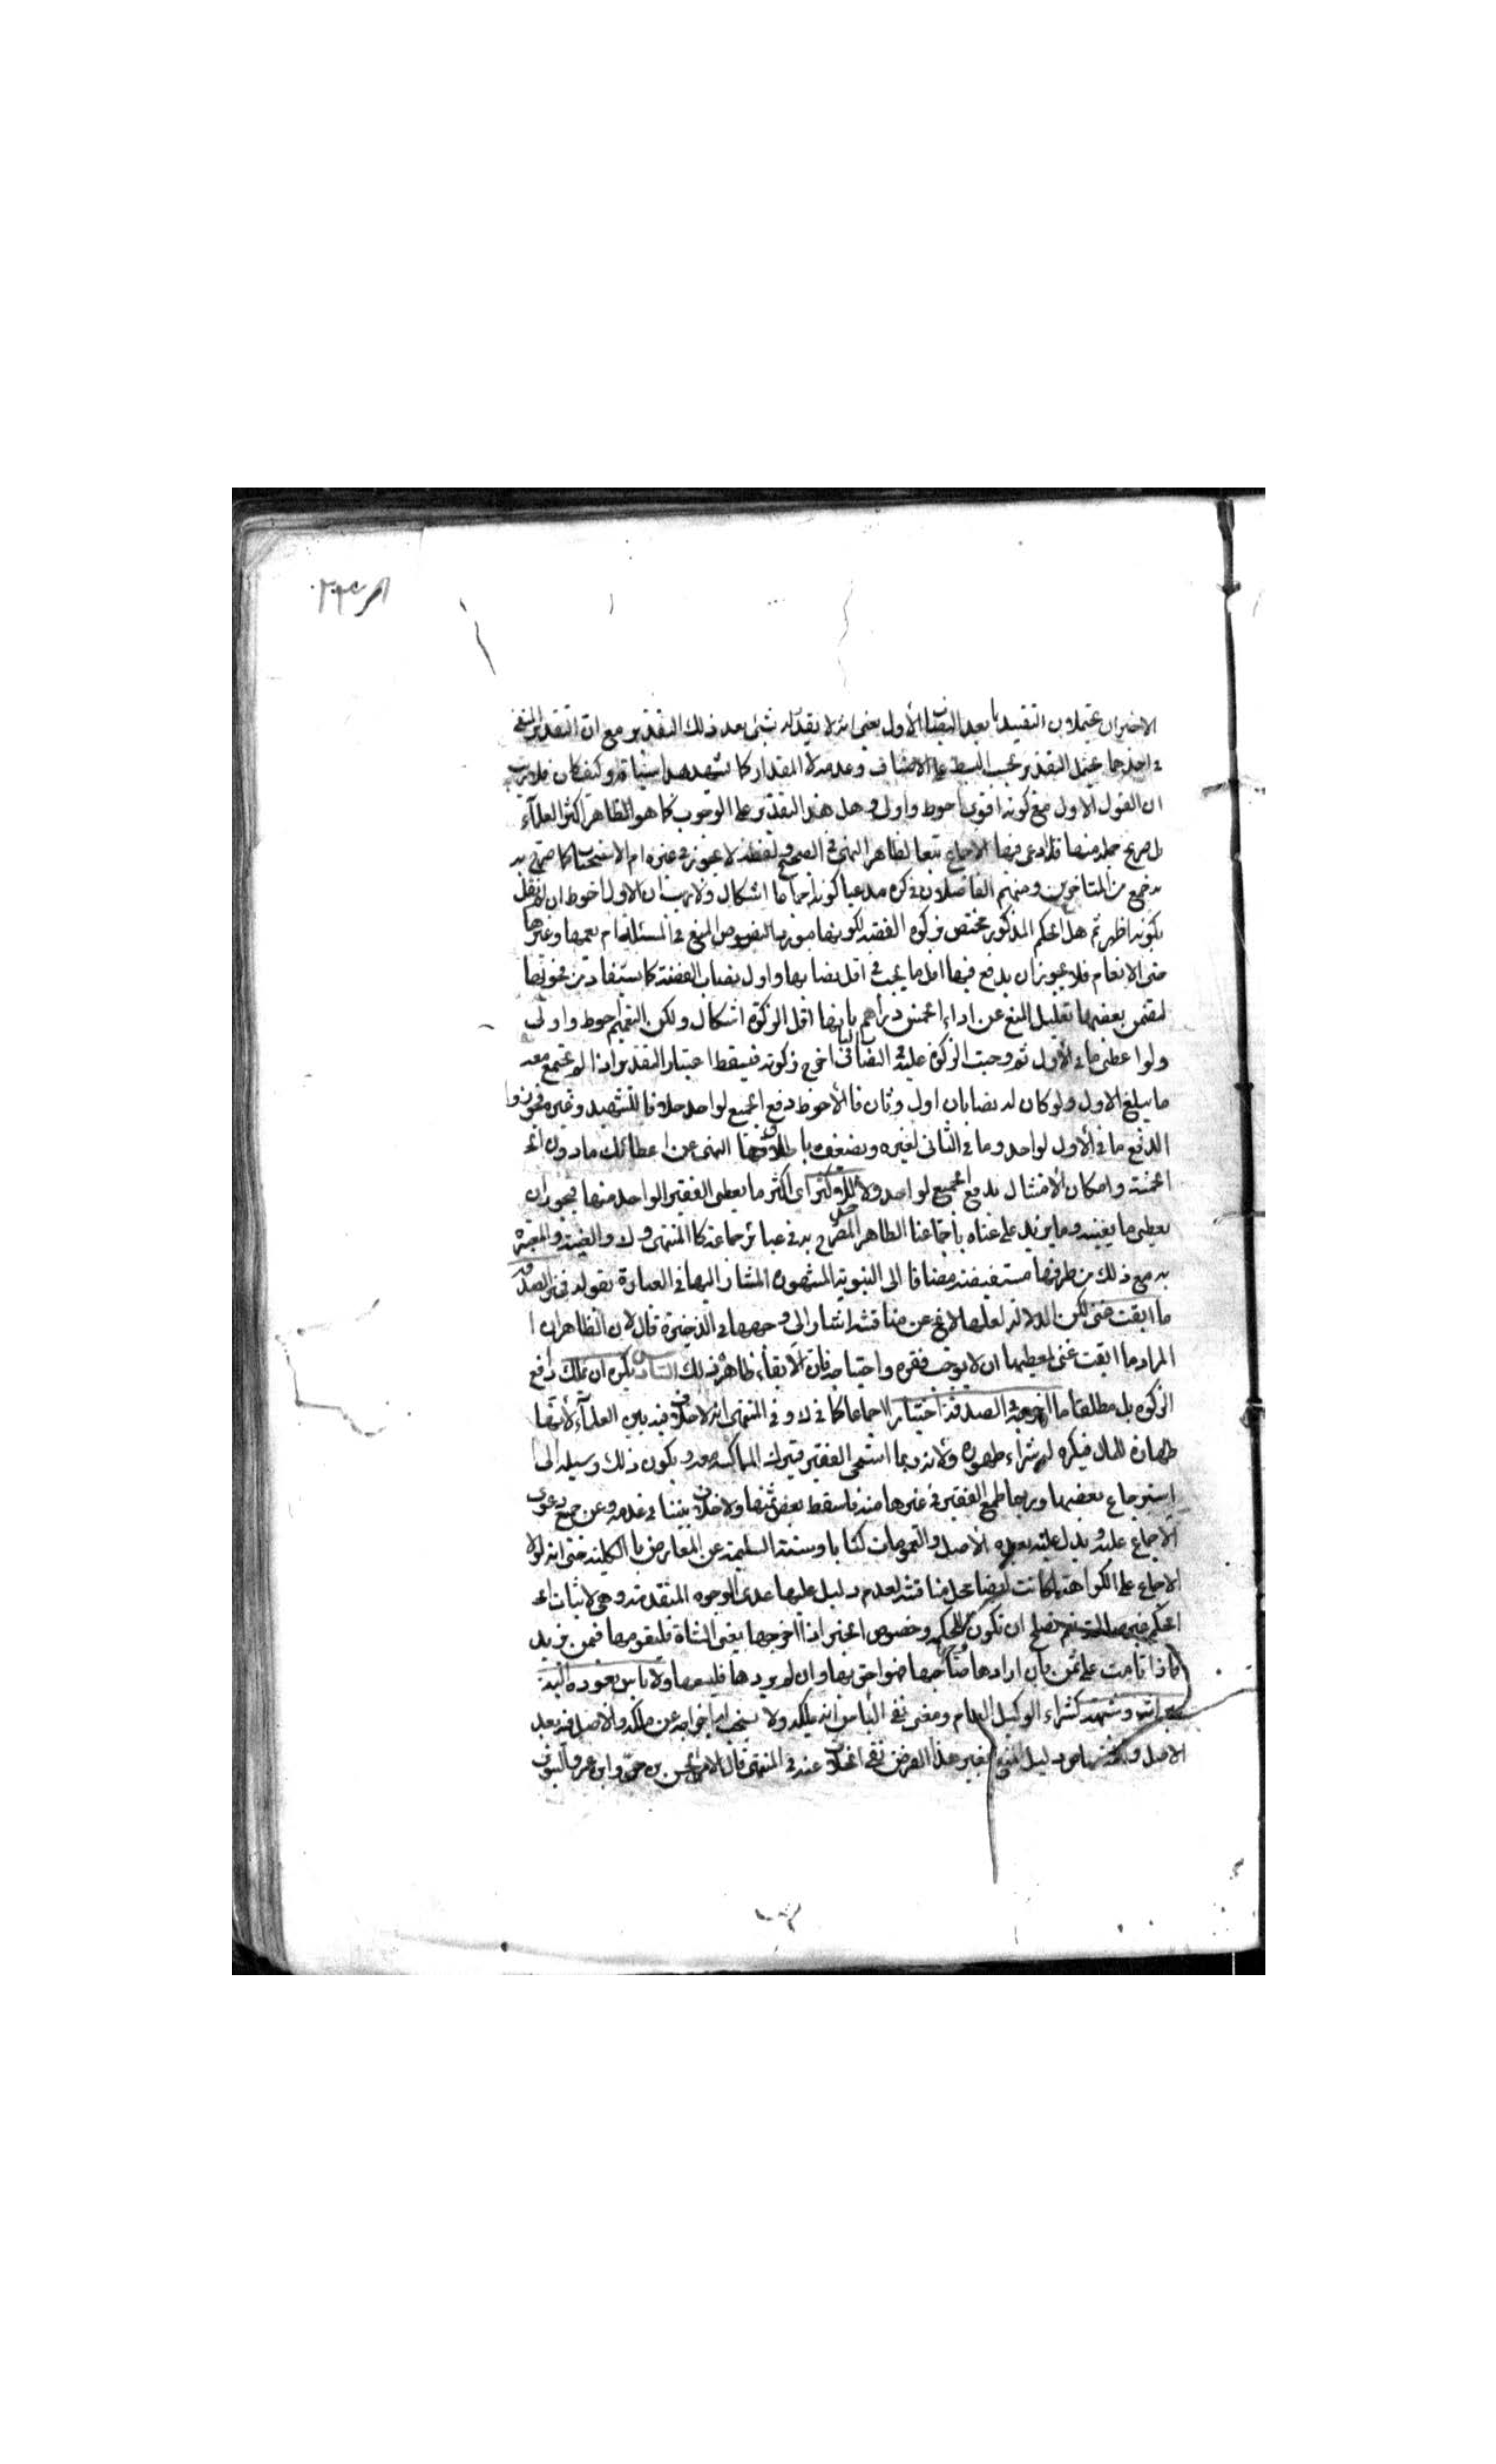 الاخيران يحتملان التقييد بما بعد النصاب الأول يعنى انه لا يقدر له بشئ بعد ذلك التقدير مع ان التقدير المنفى
فى احدهما يحتمل التقدير بحسب البسط على الاصناف وعدمه لا المقدار كما يشهد له سياقه وكيف كان فلا ريب
ان القول الاول مع كونه اقوى احوط واولى وهل هذا التقدير على الوجوب كما هو الظاهر اكثر العلماء
بل صريح جملة منها قد ادعى فيها الاجماع تبعا لظاهر النهى فى الصحيح ولفظة لا يجوز فى غيره ام الاستحباب كما صرح به
به جمع من المتاخرين ومنهم الفاضلان فى كره مدعيا كونه اجماعا اشكال ولا ريب ان الاول احوط ان لم نقل
بكونه اظهر ثم هل الحكم المذكور مختص بزكوة الفضة لكونها مورد النصوص المنع فى المسئلة ام يعمها وغيرها
حتى الانعام فلا يجوز ان يدفع فيها اقل ما يجب فى اقل نصابها واول نصاب الفضة كما يستفاد من فحويها
لتضمن بعضها تعليل المنع عن اداء الخمس دراهم بانها اقل الزكوة اشكال ولكن التعميم احوط واولى
ولو اعطى ما فى الأول ثم وجبت الزكوة عليه فى النصاب الثانى اخرج زكوته فيسقط اعتبار التقدير اذا لم يجتمع معه
ما يبلغ الاول ولو كان له نصابان اول وثان فالأحوط دفع الجميع لواحد خلافا للشهيد وغيره فجوزوا
الدفع ما فى الأول لواحد وما فى الثانى لغيره ويضعف باطلاق النهى عن اعطائك ما دون الخ
الخمسة وامكان الامتثال بدفع الجميع لواحد ولا حد للاكثر اى اكثر ما يعطى الفقير الواحد منها فيجوز ان
يعطى ما يغنيه وما يزيد على غناه باجماعنا الظاهر المصرح به فى عبائر جماعة كا المنتهى وك والغنية والمعتبرة
به مع ذلك من طرقنا مستفيضة مضافا الى النبوية المشهورة المشار اليها فى العبارة بقوله فخير الصدقة
ما ابقت غنى لكن الدلالة لعلها لا تخ عن مناقشة اشار الى وجهها فى الذخيرة قال لان الظاهر ان ا
المراد ما ابقت غنى لمعطيها ان لا يوجب فقره واحتياجه فان الأبقاء ظاهر فى ذلك السادس يكره ان يملك دافع
الزكوة بل مطلقا ما اخرجه فى الصدقة اختيارا اجماعا كما فى ك و فى المنتهى انه لا خلاف فيه بين العلماء لأنها
طهارة للمال فيكره له شراء طهوره ولانه ربما استحى الفقير فيترك المماكسة معه ويكون ذلك وسيلة الى
استرجاع بعضها وربما طمع الفقير فى غيرها منه فاسقط بعض ثمنها ولا خلاف بيننا فى عدمه وعن جمع دعوى
الاجماع عليه ويدل عليه بعده الأصل والعمومات كتابا وسنة السليمة عن المعارض با الكلية حتى انه لولا
الاجماع على الكراهة لكانت ايضا محل مناقشة لعدم دليل عليها عدى الوجوه المتقدمة وهى لا ثبات الخ
الحكم غير صالحة نعم تصلح ان تكون للحكمة وخصوص الخبر اذا اخرجها يعنى الشاة فليقومها فيمن يزيد
فاذا قامت على ثمن فان ارادها صاحبها فهو احق بها وان لم يردها فليبعها ولا باس بعوده اليه
بميراث وشبهه كشراء الوكيل العام ومعنى نفى الباس انه يملكه ولا يستحب اخراجه عن ملكه والاصل فيه بعد
الاصل واختصاص دليل المنع بغير هذا الفرض نفى الخلاف عنه فى المنتهى قال الا من الحسن بن حى وابن عمر والنبوى